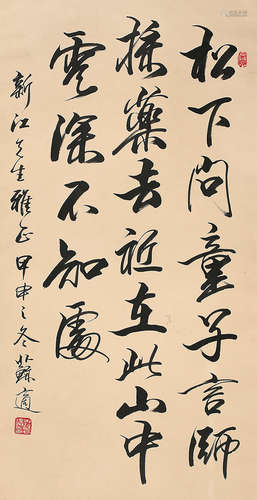 松下問童子言師
採藥去祇在此山中
雲深不知處
新江先生雅正甲申之冬蘇適